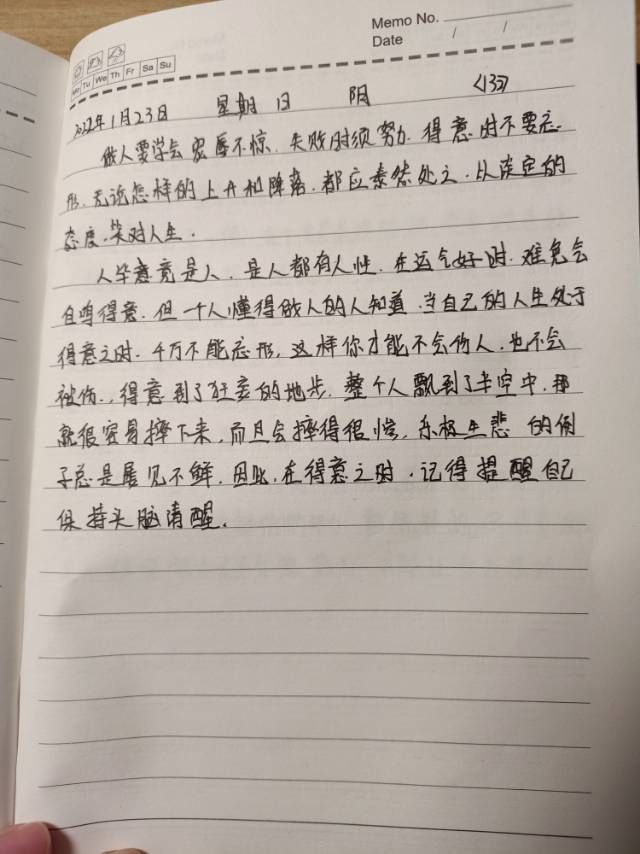 Memo No.
Date / /
Mo Tu We Th Fr Sa Su
2022年1月23日 星期日 阴 <133>
做人要学会宠辱不惊，失败时须努力，得意时不要忘
形，无论怎样的上升和降落，都应泰然处之，从淡定的
态度，笑对人生．
人毕竟是人，是人都有人性，在运气好时，难免会
自鸣得意．但一个人懂得做人的人知道，当自己的人生处于
得意之时，千万不能忘形，这样你才能不会伤人，也不会
被伤．，得意到了狂妄的地步，整个人飘到了半空中，那
就很容易摔下来，而且会摔得很惨，乐极生悲 的例
子总是屡见不鲜，因此，在得意之时，记得提醒自己
保持头脑清醒．